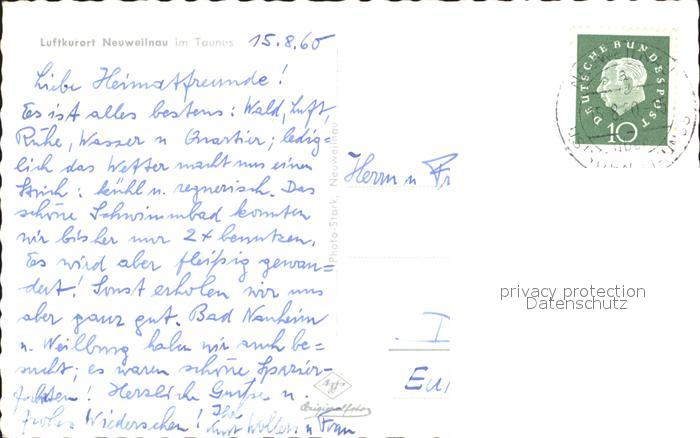 Luftkurort Neuweilnau im Taunus 15.8.60
Liebe Heimatfreunde!
Es ist alles bestens: Wald, Luft,
Ruhe, Wasser u Quartier; ledig-
lich das Wetter macht uns einen
Strich: kühl u. regnerisch. Das
schöne Schwimmbad konnten
wir bisher nur 2x benutzen.
Es wird aber fleißig gewan=
dert! Sonst erholen wir uns
aber ganz gut. Bad Nauheim
u. Weilburg haben wir auch be=
sucht; es waren schöne Spazier-
fahrten! Herzliche Grüße u.
frohes Wiedersehen! Ihr
Kurt Wolters u Frau
Photo-Stark, Neuweilnau
Originalfoto
DEUTSCHE BUNDESPOST
10
Herrn u Fr
privacy protection
Datenschutz